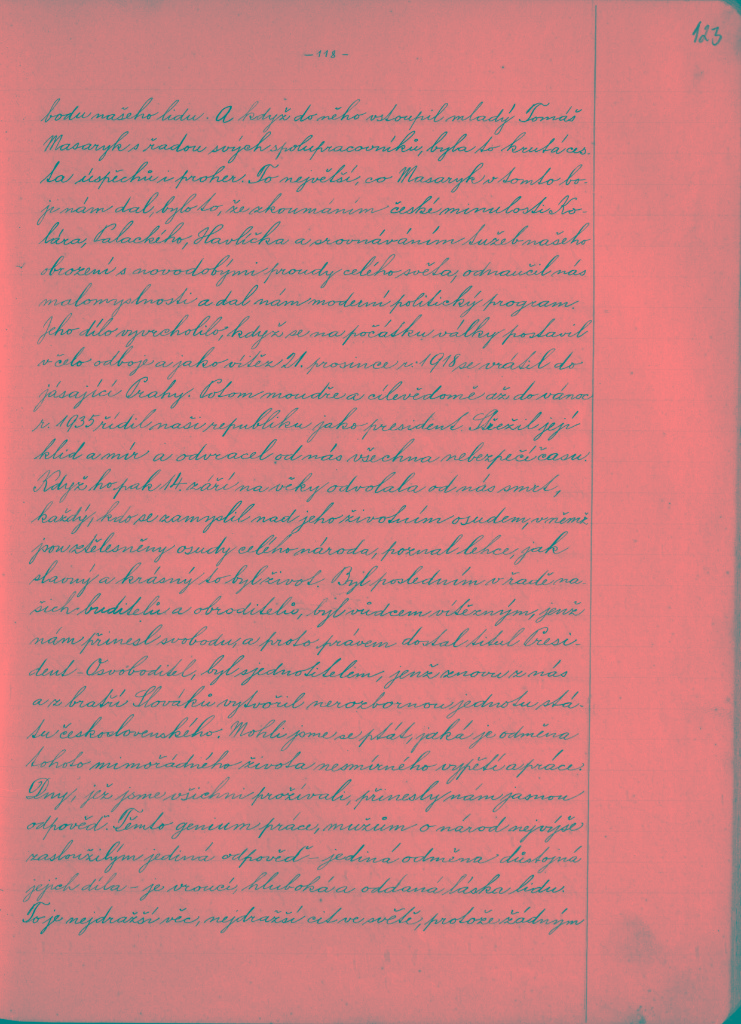 123
- 118 -
bodu našeho lidu. A když do něho vstoupil mladý Tomáš
Masaryk s řadou svých spolupracovníků, byla to krutá ces-
ta úspěchů i proher. To největší, co Masaryk v tomto bo-
ji nám dal, bylo to, že zkoumáním české minulosti, Ko-
lára, Palackého, Havlíčka a srovnáváním tužeb našeho
obrození s novodobými proudy celého světa, odnaučil nás
malomyslnosti a dal nám moderní politický program.
Jeho dílo vyvrcholilo, když se na počátku války postavil
v čelo odboje a jako vítěz 21. prosince r. 1918 se vrátil do
jásající Prahy. Potom moudře a cílevědomě až do vánoc
r. 1935 řídil naši republiku jako president. Střežil její
klid a mír a odvracel od nás všechna nebezpečí času.
Když ho pak 14. září na věky odvolala od nás smrt,
každý, kdo se zamyslil nad jeho životním osudem, v němž
jsou ztělesněny osudy celého národa, poznal lehce, jak
slavný a krásný to byl život. Byl posledním v řadě na-
šich buditelů a obroditelů, byl vůdcem vítězným, jenž
nám přinesl svobodu, a proto právem dostal titul Presi-
dent-Osvoboditel, byl sjednotitelem, jenž znovu z nás
a z bratří Slováků vytvořil nerozbornou jednotu stá-
tu československého. Mohli jsme se ptát, jaká je odměna
tohoto mimořádného života nesmírného vypětí a práce.
Dny, jež jsme všichni prožívali, přinesly nám jasnou
odpověď. Těmto geniům práce, mužům o národ nejvýše
zasloužilým jediná odpověď - jediná odměna důstojná
jejich díla - je vroucí, hluboká a oddaná láska lidu.
To je nejdražší věc, nejdražší cit ve světě, protože žádným